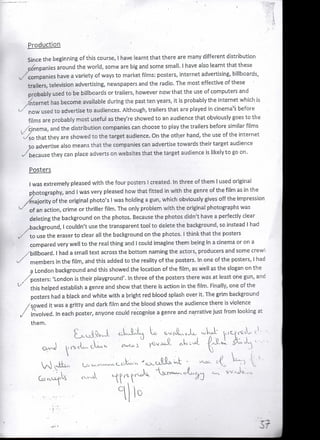 Production
Since the beginning of this course, I have learnt that there are many different distribution
companies around the world, some are big and some small. I have also learnt that these
companies have a variety of ways to market films: posters, internet advertising, billboards,
trailers, television advertising, newspapers and the radio. The most effective of these
probably used to be billboards or trailers, however now that the use of computers and
internet has become available during the past ten years, it is probably the internet which is
now used to advertise to audiences. Although, trailers that are played in cinema's before
films are probably most useful as they're showed to an audience that obviously goes to the
cinema, and the distribution companies can choose to play the trailers before similar films
so that they are showed to the target audience. On the other hand, the use of the internet
to advertise also means that the companies can advertise towards their target audience
because they can place adverts on websites that the target audience is likely to go on.
Posters
I was extremely pleased with the four posters I created. In three of them I used original
photography, and I was very pleased how that fitted in with the genre of the film as in the
majority of the original photo's I was holding a gun, which obviously gives off the impression
of an action, crime or thriller film. The only problem with the original photographs was
deleting the background on the photos. Because the photos didn't have a perfectly clear
background, I couldn't use the transparent tool to delete the background, so instead I had
to use the eraser to clear all the background on the photos. I think that the posters
compared very well to the real thing and I could imagine them being in a cinema or on a
billboard. I had a small text across the bottom naming the actors, producers and some crew
members in the film, and this added to the reality of the posters. In one of the posters, I had
a London background and this showed the location of the film, as well as the slogan on the
posters: 'London is their playground'. In three of the posters there was at least one gun, and
this helped establish a genre and show that there is action in the film. Finally, one of the
posters had a black and white with a bright red blood splash over it. The grim background
sowed it was a gritty and dark film and the blood shows the audience there is violence
involved. In each poster, anyone could recognise a genre and narrative just from looking at
them.
Excellent ability to evaluate what
and production
Written communication excellent - use of key
concepts and appropriate terminology in evidence
9/10
57